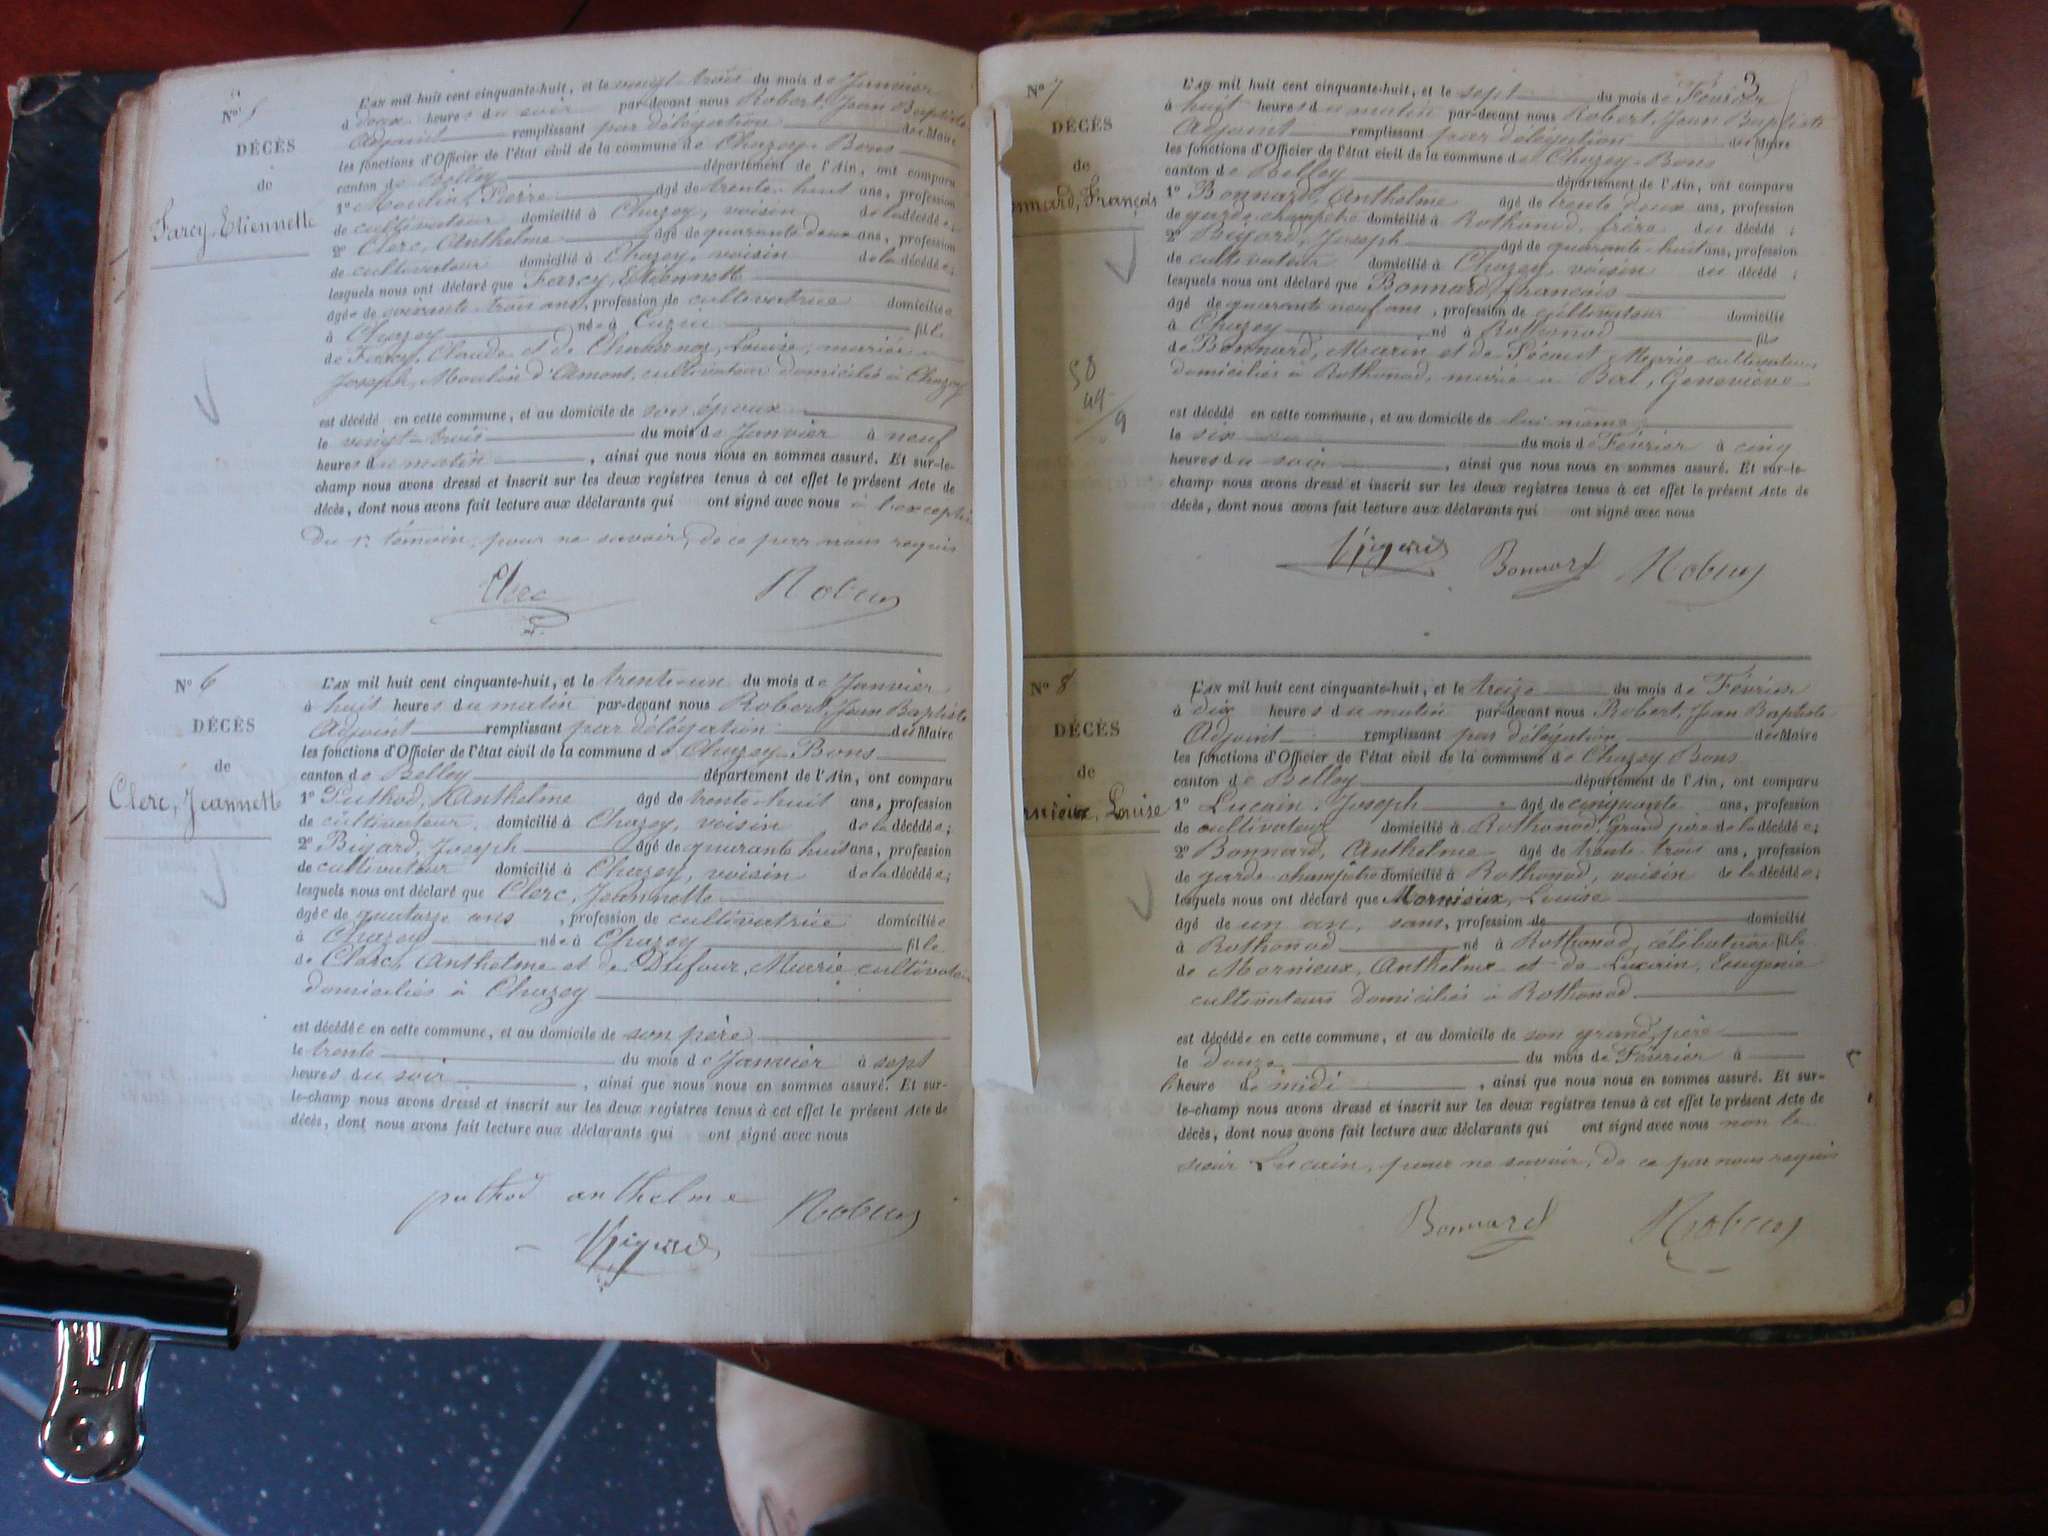 2
N° 5
DÉCÈS
de
Farcy, Etiennette
L'AN mil huit cent cinquante-huit, et le vingt-trois du mois de Janvier
à deux heures du soir par-devant nous Robert, Jean Baptiste
Adjoint remplissant par délégation du Maire
les fonctions d'Officier de l'état civil de la commune de Chazey-Bons
canton de Belley département de l'Ain, ont comparu
1° Moulin, Pierre âgé de trente-huit ans, profession
de cultivateur domicilié à Chazey, voisin de la décédée;
2° Clerc, Anthelme âgé de quarante deux ans, profession
de cultivateur domicilié à Chazey, voisin de la décédée;
lesquels nous ont déclaré que Farcy, Etiennette
âgée de trois ans, profession de cultivatrice domiciliée
à Chazey née à Cuzieu fille
de Farcy, Claude et de Louise, mariée à
Joseph, Moulin d'Amont, cultivateur domicilié à Chazey
est décédé en cette commune, et au domicile de son époux
le vingt-trois du mois de Janvier à neuf
heures du matin , ainsi que nous nous en sommes assuré. Et sur-le-
champ nous avons dressé et inscrit sur les deux registres tenus à cet effet le présent Acte de
décès, dont nous avons fait lecture aux déclarants qui ont signé avec nous à l'exception
du 1er témoin, pour ne savoir, de ce par nous requis
Clerc Robert
N° 6
DÉCÈS
de
Clerc, Jeannette
L'AN mil huit cent cinquante-huit, et le trente-un du mois de Janvier
à huit heures du matin par-devant nous Robert, Jean Baptiste
Adjoint remplissant par délégation du Maire
les fonctions d'Officier de l'état civil de la commune de Chazey-Bons
canton de Belley département de l'Ain, ont comparu
1° Puthod, Anthelme âgé de trente-huit ans, profession
de cultivateur, domicilié à Chazey, voisin de la décédée;
2° Bigard, Joseph âgé de quarante huit ans, profession
de cultivateur domicilié à Chazey, voisin de la décédée;
lesquels nous ont déclaré que Clerc, Jeannette
âgée de quatorze ans , profession de cultivatrice domiciliée
à Chazey née à Chazey fille
de Clerc, Anthelme et de Dufour, Marie cultivateurs
domiciliés à Chazey
est décédée en cette commune, et au domicile de son père
le trente du mois de Janvier à sept
heures du soir , ainsi que nous nous en sommes assuré. Et sur-
le-champ nous avons dressé et inscrit sur les deux registres tenus à cet effet le présent Acte de
décès, dont nous avons fait lecture aux déclarants qui ont signé avec nous
puthod anthelme Robert
Bigard
3
N° 7
DÉCÈS
de
onnard, François
58
49
9
L'AN mil huit cent cinquante-huit, et le sept du mois de Février
à huit heures du matin par-devant nous Robert, Jean Baptiste
Adjoint remplissant par délégation du Maire
les fonctions d'Officier de l'état civil de la commune de Chazey-Bons
canton de Belley département de l'Ain, ont comparu
1° Bonnard, Anthelme âgé de trente deux ans, profession
de garde-champêtre domicilié à Rothonod, frère du décédé ;
2° Bigard, Joseph âgé de quarante-huit ans, profession
de cultivateur domicilié à Chazey, voisin du décédé ;
lesquels nous ont déclaré que Bonnard, françois
âgé de quarante neuf ans , profession de cultivateur domicilié
à Chazey né à Rothonod fils
de Bonnard, Marin et de Pécout Marie cultivateurs
domiciliés à Rothonod, marié à Bert, Geneviève
est décédé en cette commune, et au domicile de lui même
le six du mois de Février à cinq
heures du soir , ainsi que nous nous en sommes assuré. Et sur-le-
champ nous avons dressé et inscrit sur les deux registres tenus à cet effet le présent Acte de
décès, dont nous avons fait lecture aux déclarants qui ont signé avec nous
Bigard Bonnard Robert
N° 8
DÉCÈS
de
rnieux, Louise
L'AN mil huit cent cinquante-huit, et le treize du mois de Février
à dix heures du matin par-devant nous Robert, Jean Baptiste
Adjoint remplissant par délégation du Maire
les fonctions d'Officier de l'état civil de la commune de Chazey Bons
canton de Belley département de l'Ain, ont comparu
1° Lucain, Joseph âgé de cinquante ans, profession
de cultivateur domicilié à Rothonod, Grand père de la décédée;
2° Bonnard, Anthelme âgé de trente trois ans, profession
de garde-champêtre domicilié à Rothonod, voisin de la décédée;
lesquels nous ont déclaré que Mornieux, Louise
âgé de un an, sans, profession de domicilié
à Rothonod né à Rothonod, célibataire fille
de Mornieux, Anthelme et de Lucain, Eugenie
cultivateurs domiciliés à Rothonod
est décédée en cette commune, et au domicile de son grand père
le douze du mois de Février à
l'heure de midi , ainsi que nous nous en sommes assuré. Et sur-
le-champ nous avons dressé et inscrit sur les deux registres tenus à cet effet le présent Acte de
décès, dont nous avons fait lecture aux déclarants qui ont signé avec nous non le
sieur Lucain, pour ne savoir, de ce par nous requis
Bonnard Robert